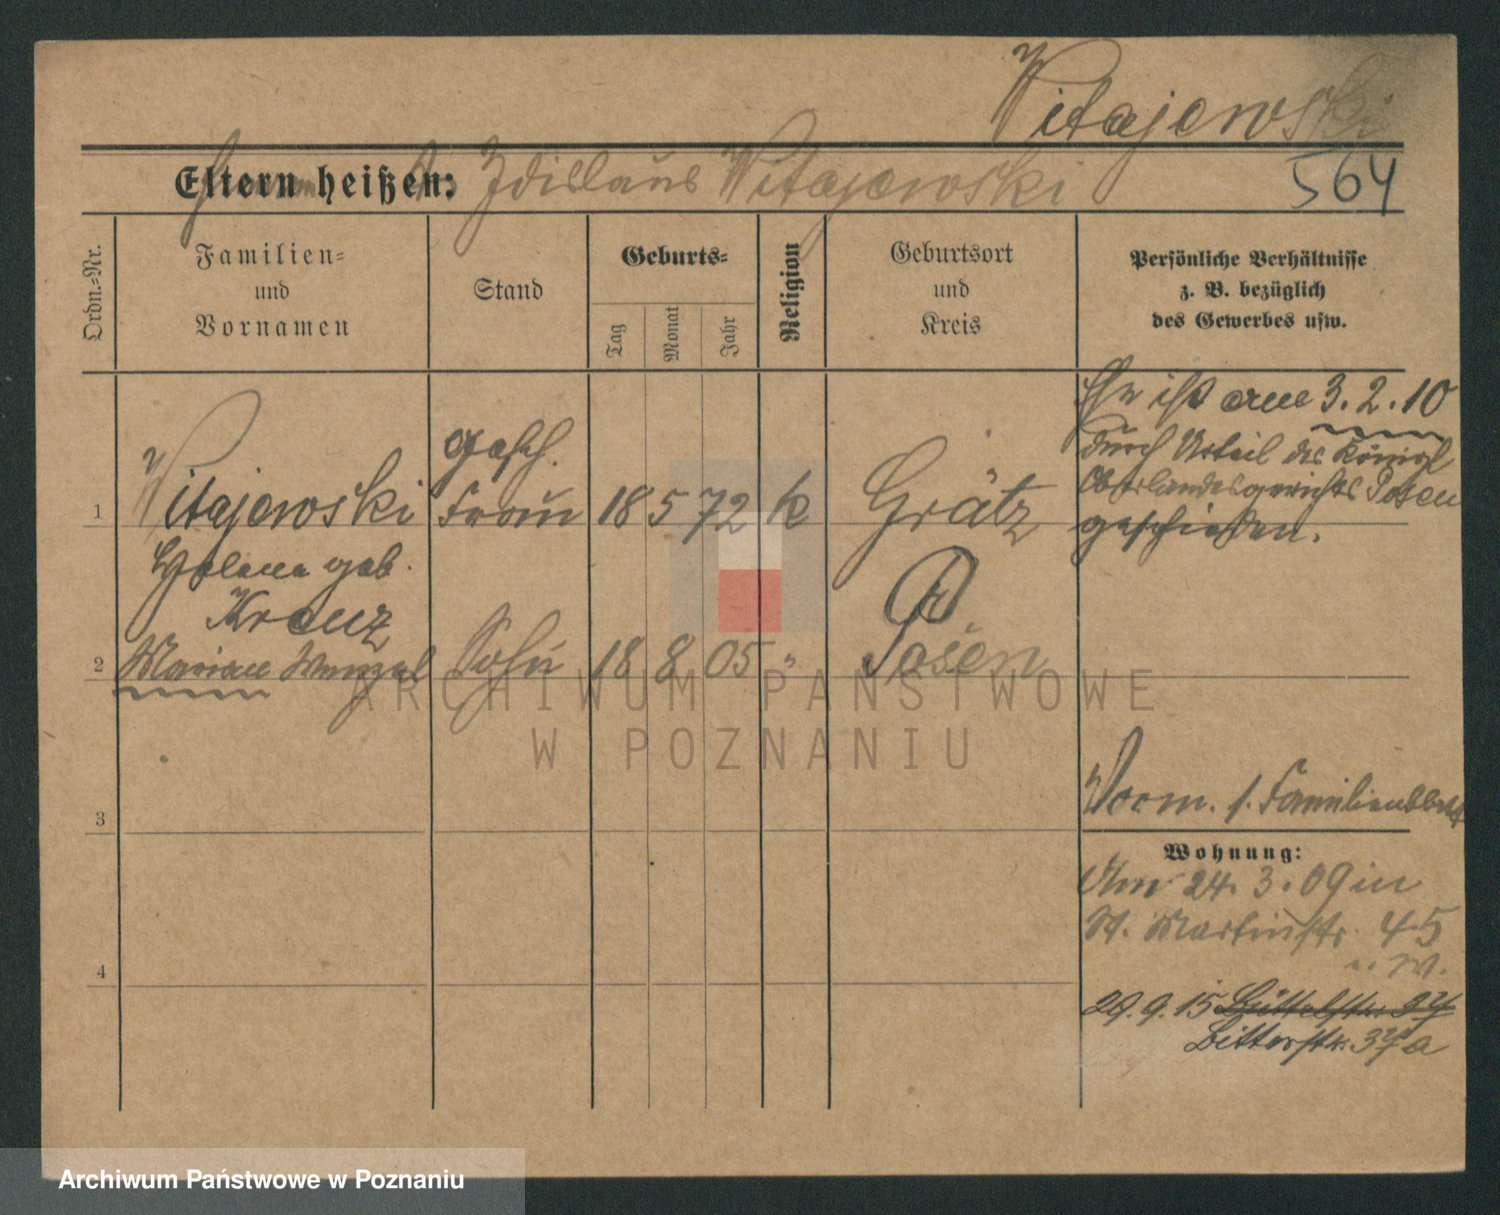 Witajewski
Eltern heißen: Zdislaus Witajewski 564
Ordn.-Nr.
Familien-
und
Vornamen
Stand
Geburts-
Tag
Monat
Jahr
Religion
Geburtsort
und
Kreis
Persönliche Verhältnisse
z. B. bezüglich
des Gewerbes usw.
Ehe ist am 3.2.10
durch Urteil des Königl
Oberlandesgerichts Posen
geschieden.
gesch.
1 Witajewski Frau 18 5 72 k Grätz
Helene geb.
Krenz
2 Marian Wenzel Sohn 18 8 05 " Posen
3
Vorm. s. Familienblatt
Wohnung:
Am 24. 3. 09 in
St. Martinstr. 45
4
u. W.
29.9.15 Büttelstr. 37
Bitterstr. 37a
ARCHIWUM PAŃSTWOWE
W POZNANIU
Archiwum Państwowe w Poznaniu